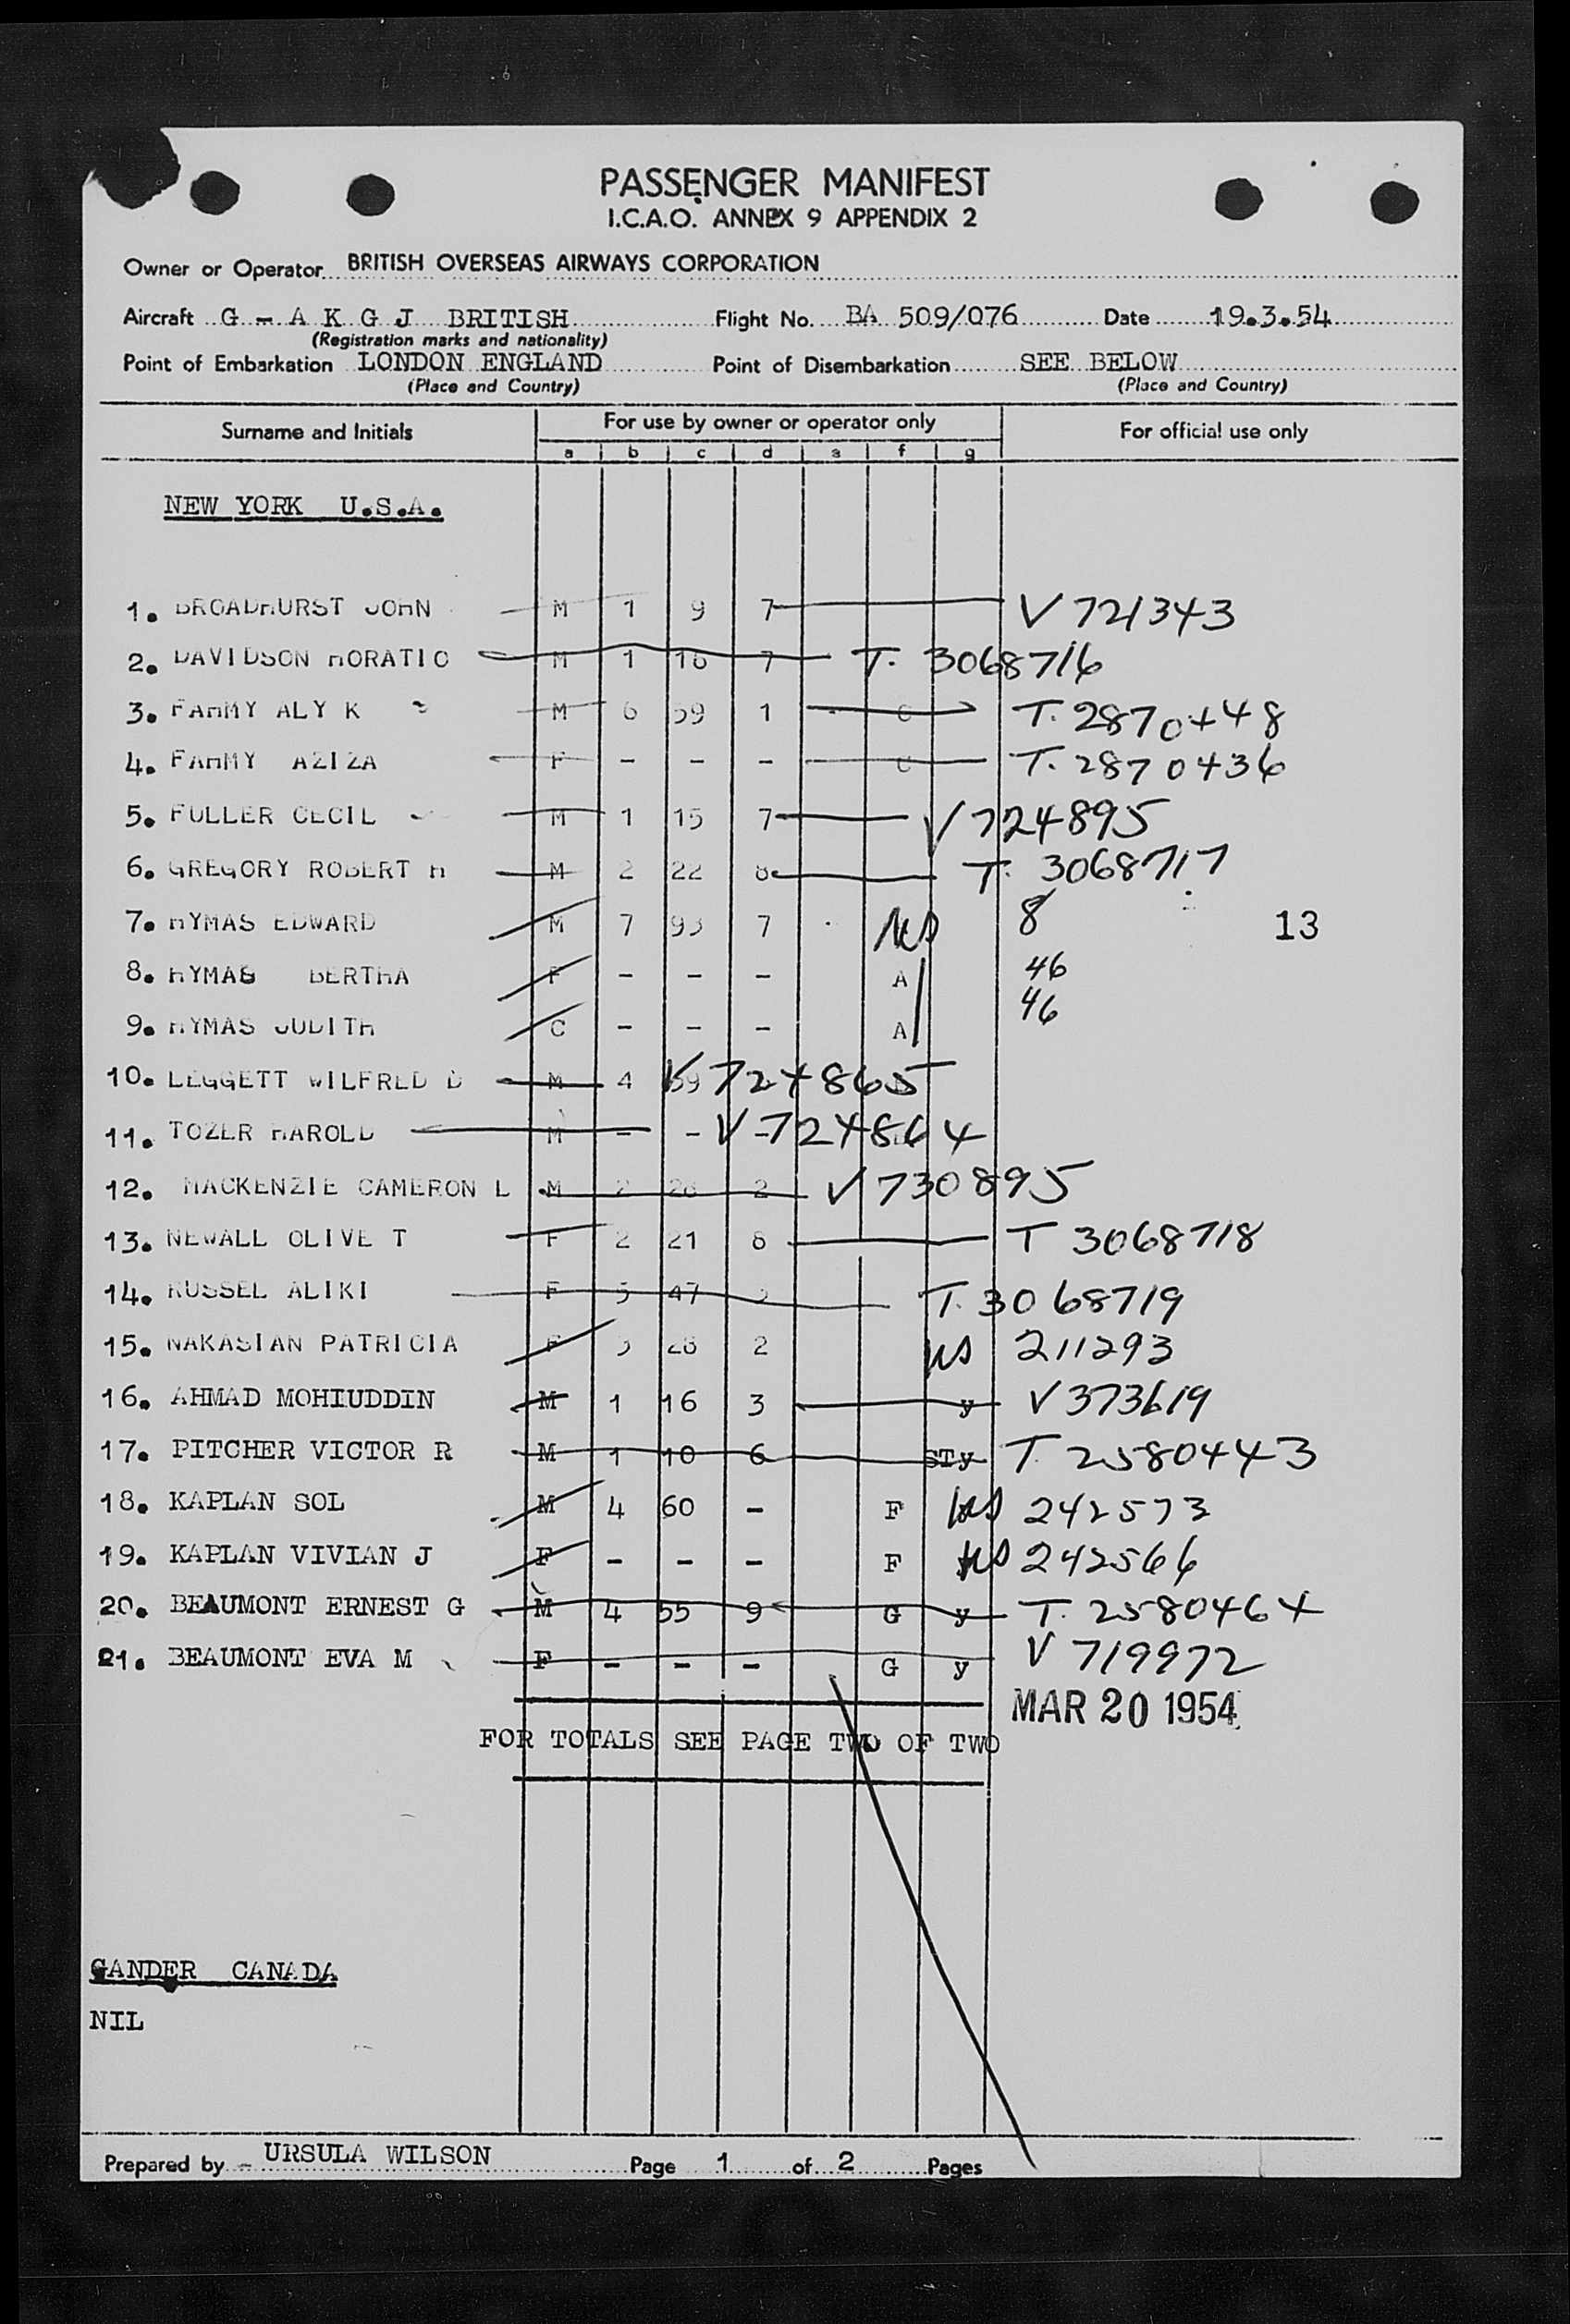 PASSENGER MANIFEST
I.C.A.O. ANNEX 9 APPENDIX 2
Owner or Operator BRITISH OVERSEAS AIRWAYS CORPORATION
Aircraft G - A K G J BRITISH Flight No. BA 509/076 Date 19.3.54
(Registration marks and nationality)
Point of Embarkation LONDON ENGLAND Point of Disembarkation SEE BELOW
(Place and Country) (Place and Country)
Surname and Initials For use by owner or operator only For official use only
a b c d e f g
NEW YORK U.S.A.
1. BROADHURST JOHN M 1 9 7 V 721343
2. DAVIDSON HORATIO M 1 16 7 T. 3068716
3. FAHMY ALY K M 6 59 1 C T. 2870448
4. FAHMY AZIZA F - - - C T. 2870436
5. FULLER CECIL M 1 15 7 V 724895
6. GREGORY ROBERT H M 2 22 8 T. 3068717
7. HYMAS EDWARD M 7 93 7 US 8 13
8. HYMAS BERTHA F - - - A 46
9. HYMAS JUDITH C - - - A 46
10. LEGGETT WILFRED D M 4 59 V 724865
11. TOZER HAROLD M - - - V 724864
12. MACKENZIE CAMERON L M 2 28 2 V 730895
13. NEWALL OLIVE T F 2 21 8 T 3068718
14. RUSSEL ALIKI F 3 47 T. 3068719
15. NAKASIAN PATRICIA F 3 28 2 US 211293
16. AHMAD MOHIUDDIN M 1 16 3 y V 373619
17. PITCHER VICTOR R M 1 10 6 STy T. 2580443
18. KAPLAN SOL M 4 60 - F US 242573
19. KAPLAN VIVIAN J F - - - F US 242566
20. BEAUMONT ERNEST G M 4 55 9 G y T. 2580464
21. BEAUMONT EVA M F - - - G y V 719972
MAR 20 1954
FOR TOTALS SEE PAGE TWO OF TWO
GANDER CANADA
NIL
Prepared by - URSULA WILSON Page 1 of 2 Pages